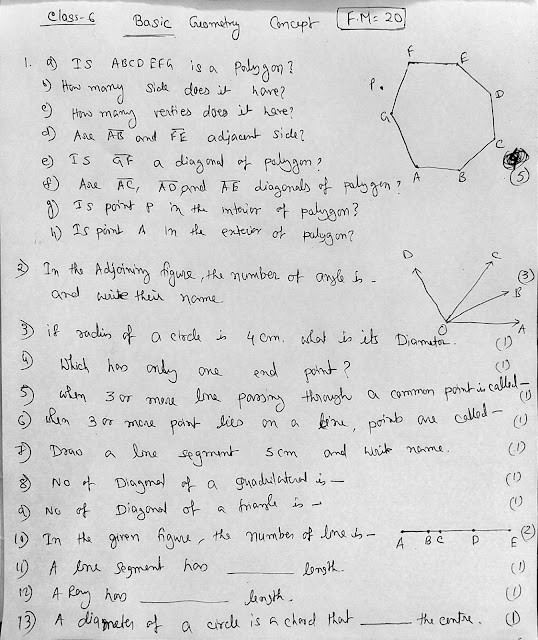 Class-6 Basic Geometry Concept F.M=20
1. a) Is ABCDEFG is a Polygon?
b) How many side does it have?
c) How many verties does it have?
d) Are AB and FE adjacent side?
e) Is GF a diagonal of polygon?
f) Are AC, AD, and AE diagonals of polygon?
g) Is point P in the interior of polygon?
h) Is point A in the exterior of polygon?
F
E
P.
D
G
C
A
B
(5)
2) In the Adjoining figure, the number of angle is -
and write their name
D
C
B
O
A
(3)
3) if radius of a circle is 4 cm. what is its Diameter. (1)
4) Which has only one end point? (1)
5) when 3 or more line passing through a common point is called - (1)
6) when 3 or more point lies on a line, points are called - (1)
7) Draw a line segment 5 cm and write name. (1)
8) No of Diagonal of a quadrilateral is - (1)
9) No of Diagonal of a triangle is - (1)
10) In the given figure, the number of line is - A B C D E (2)
11) A line segment has ______ length. (1)
12) A Ray has ______ length. (1)
13) A diameter of a circle is a chord that ______ the centre. (1)